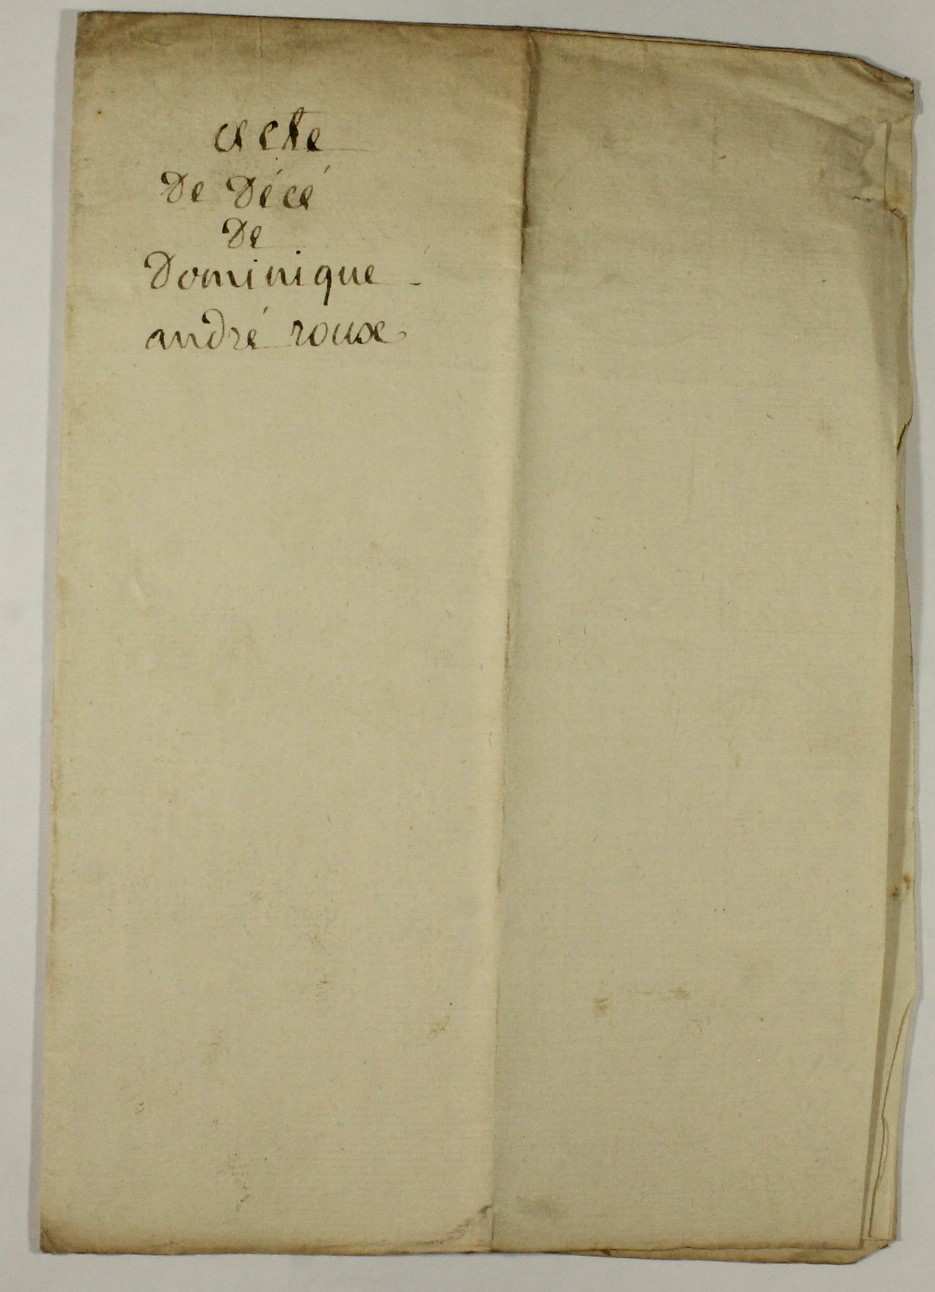 acte
De Décé
De
Dominique
andré roux